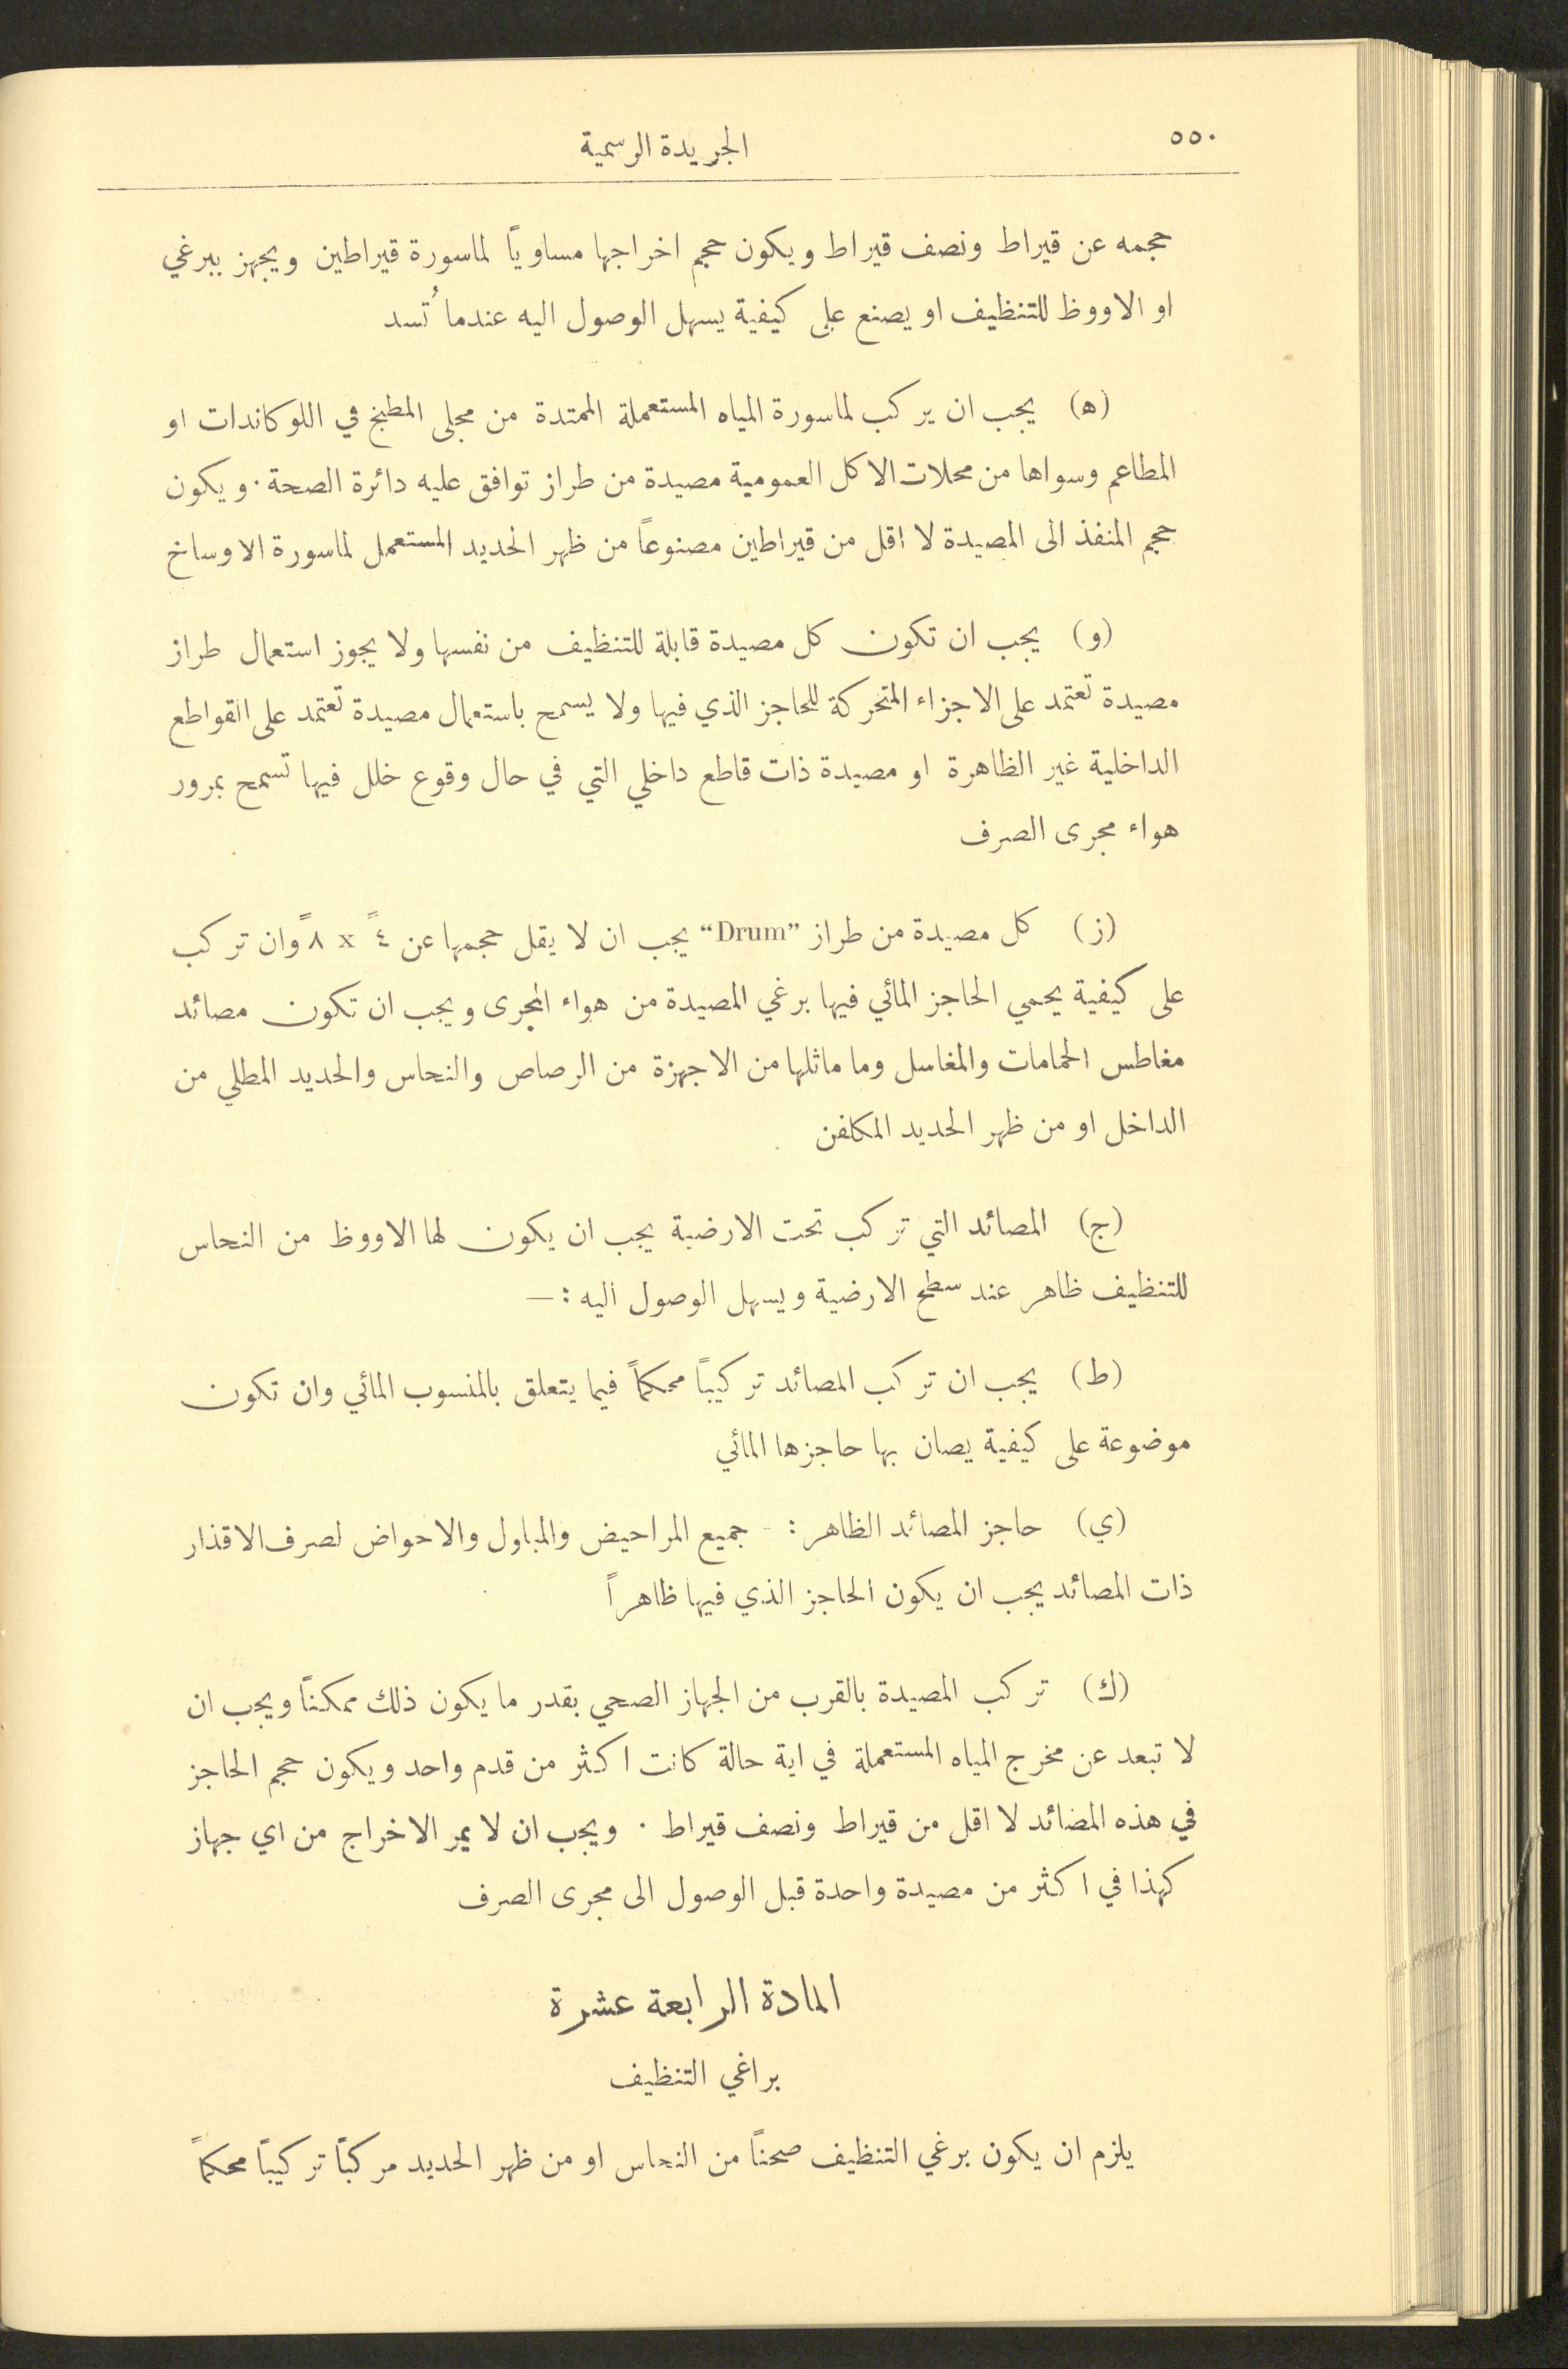 ٥٥٠
الجريدة الرسمية
حجمه عن قيراط ونصف قيراط ويكون حجم اخراجها مساوياً لماسورة قيراطين ويجهز ببرغي
او الاووظ للتنظيف او يصنع على كيفية يسهل الوصول اليه عندما تُسد
(ه) يجب ان يركب لماسورة المياه المستعملة الممتدة من مجلى المطبخ في اللوكاندات او
المطاعم وسواها من محلات الاكل العمومية مصيدة من طراز توافق عليه دائرة الصحة. ويكون
حجم المنفذ الى المصيدة لا اقل من قيراطين مصنوعاً من ظهر الحديد المستعمل لماسورة الاوساخ
(و) يجب ان تكون كل مصيدة قابلة للتنظيف من نفسها ولا يجوز استعمال طراز
مصيدة تعتمد على الاجزاء المتحركة للحاجز الذي فيها ولا يسمح باستعمال مصيدة تعتمد على القواطع
الداخلية غير الظاهرة او مصيدة ذات قاطع داخلي التي في حال وقوع خلل فيها تسمح بمرور
هواء مجرى الصرف
(ز) كل مصيدة من طراز “Drum” يجب ان لا يقل حجمها عن ٤ً x ٨ً وان تركب
على كيفية يحمي الحاجز المائي فيها برغي المصيدة من هواء المجرى ويجب ان تكون مصائد
مغاطس الحمامات والمغاسل وما ماثلها من الاجهزة من الرصاص والنحاس والحديد المطلي من
الداخل او من ظهر الحديد المكلفن
(ج) المصائد التي تركب تحت الارضية يجب ان يكون لها الاووظ من النحاس
للتنظيف ظاهر عند سطح الارضية ويسهل الوصول اليه :—
(ط) يجب ان تركب المصائد تركيباً محكماً فيما يتعلق بالمنسوب المائي وان تكون
موضوعة على كيفية يصان بها حاجزها المائي
(ي) حاجز المصائد الظاهر : - جميع المراحيض والمباول والاحواض لصرف الاقذار
ذات المصائد يجب ان يكون الحاجز الذي فيها ظاهراً
(ك) تركب المصيدة بالقرب من الجهاز الصحي بقدر ما يكون ذلك ممكناً ويجب ان
لا تبعد عن مخرج المياه المستعملة في اية حالة كانت اكثر من قدم واحد ويكون حجم الحاجز
في هذه المصائد لا اقل من قيراط ونصف قيراط . ويجب ان لا يمر الاخراج من اي جهاز
كهذا في اكثر من مصيدة واحدة قبل الوصول الى مجرى الصرف
المادة الرابعة عشرة
براغي التنظيف
يلزم ان يكون برغي التنظيف صحناً من النحاس او من ظهر الحديد مركباً تركيباً محكماً